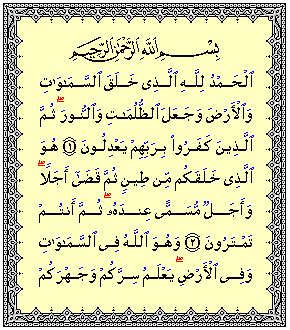 بِسْمِ ٱللَّهِ ٱلرَّحْمَٰنِ ٱلرَّحِيمِ
ٱلْحَمْدُ لِلَّهِ ٱلَّذِى خَلَقَ ٱلسَّمَٰوَٰتِ
وَٱلْأَرْضَ وَجَعَلَ ٱلظُّلُمَٰتِ وَٱلنُّورَ ۖ ثُمَّ
ٱلَّذِينَ كَفَرُوا۟ بِرَبِّهِمْ يَعْدِلُونَ ١ هُوَ
ٱلَّذِى خَلَقَكُم مِّن طِينٍ ثُمَّ قَضَىٰٓ أَجَلًا ۖ
وَأَجَلٌ مُّسَمًّى عِندَهُۥ ۖ ثُمَّ أَنتُمْ
تَمْتَرُونَ ٢ وَهُوَ ٱللَّهُ فِى ٱلسَّمَٰوَٰتِ
وَفِى ٱلْأَرْضِ ۖ يَعْلَمُ سِرَّكُمْ وَجَهْرَكُمْ